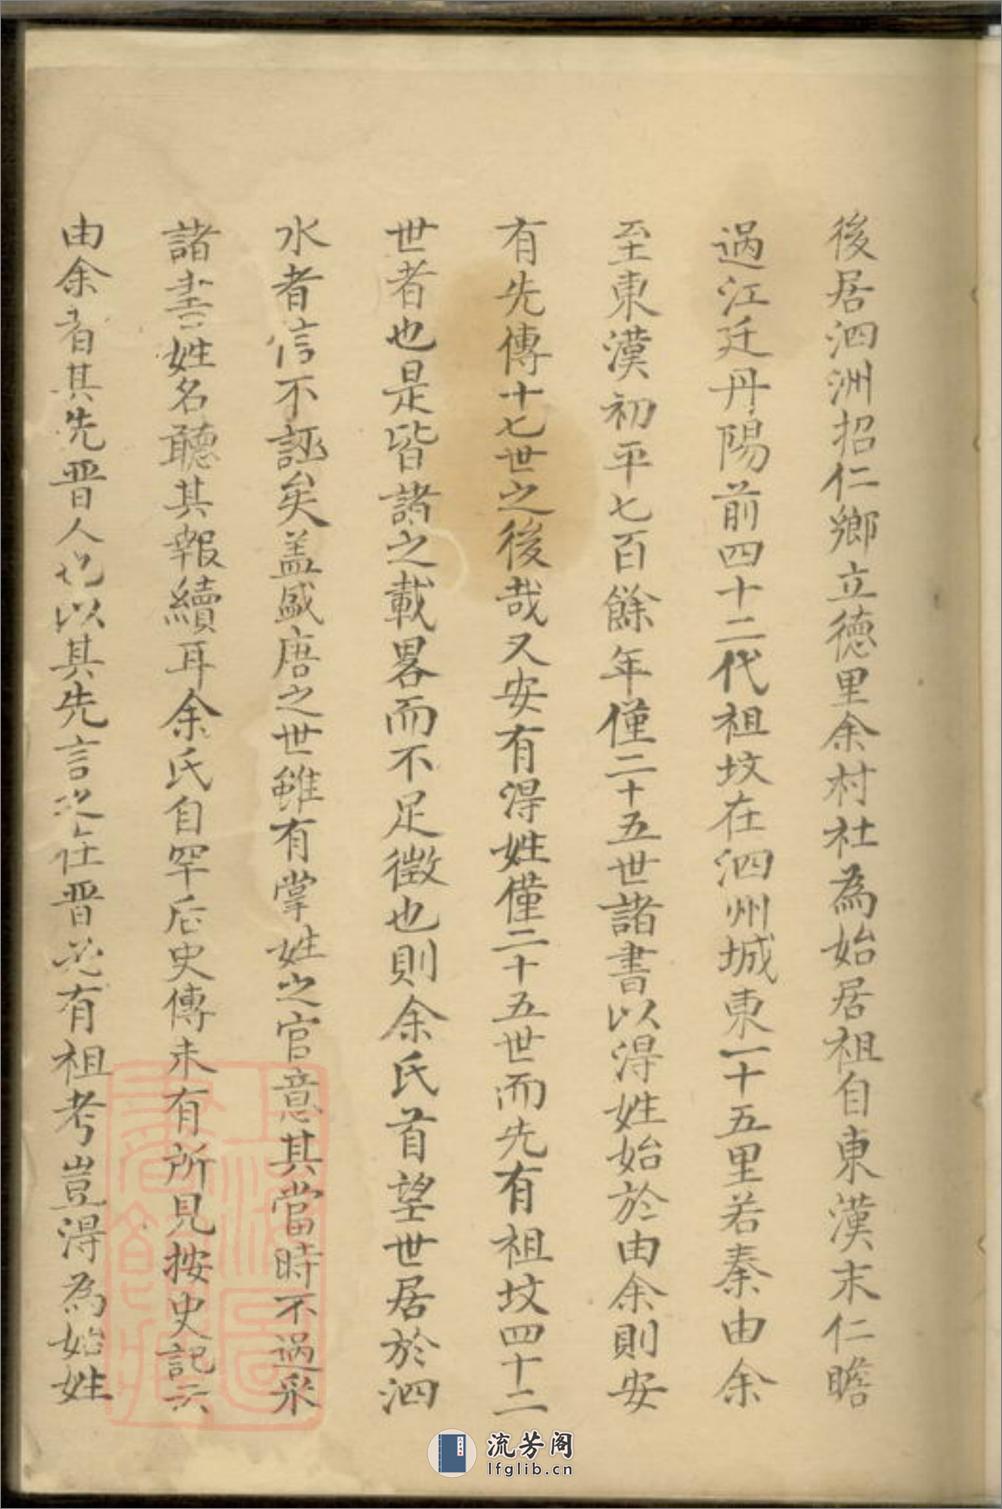 後居泗洲招仁鄉立德里余村社為始居祖自東漢末仁瞻
過江廷丹陽前四十二代祖坟在泗州城東一十五里若秦由余
至東漢初平七百餘年僅二十五世諸書以得姓始於由余則安
有先傳十七世之後哉又安有得姓僅二十五世而先有祖坟四十二
世者也是皆諸之載畧而不足徵也則余氏首望世居於泗
水者信不誣矣盖盛唐之世雖有掌姓之官意其當時不過采
諸書姓名聽其報續耳余氏自罕后史傳未有所見按史記云
由余者其先晋人也以其先言之在晋必有祖考豈得為始姓
流芳阁
lfglib.cn